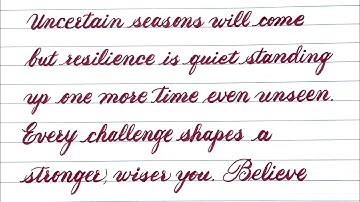 Uncertain seasons will come
but resilience is quiet standing
up one more time even unseen.
Every challenge shapes a
stronger, wiser you. Believe